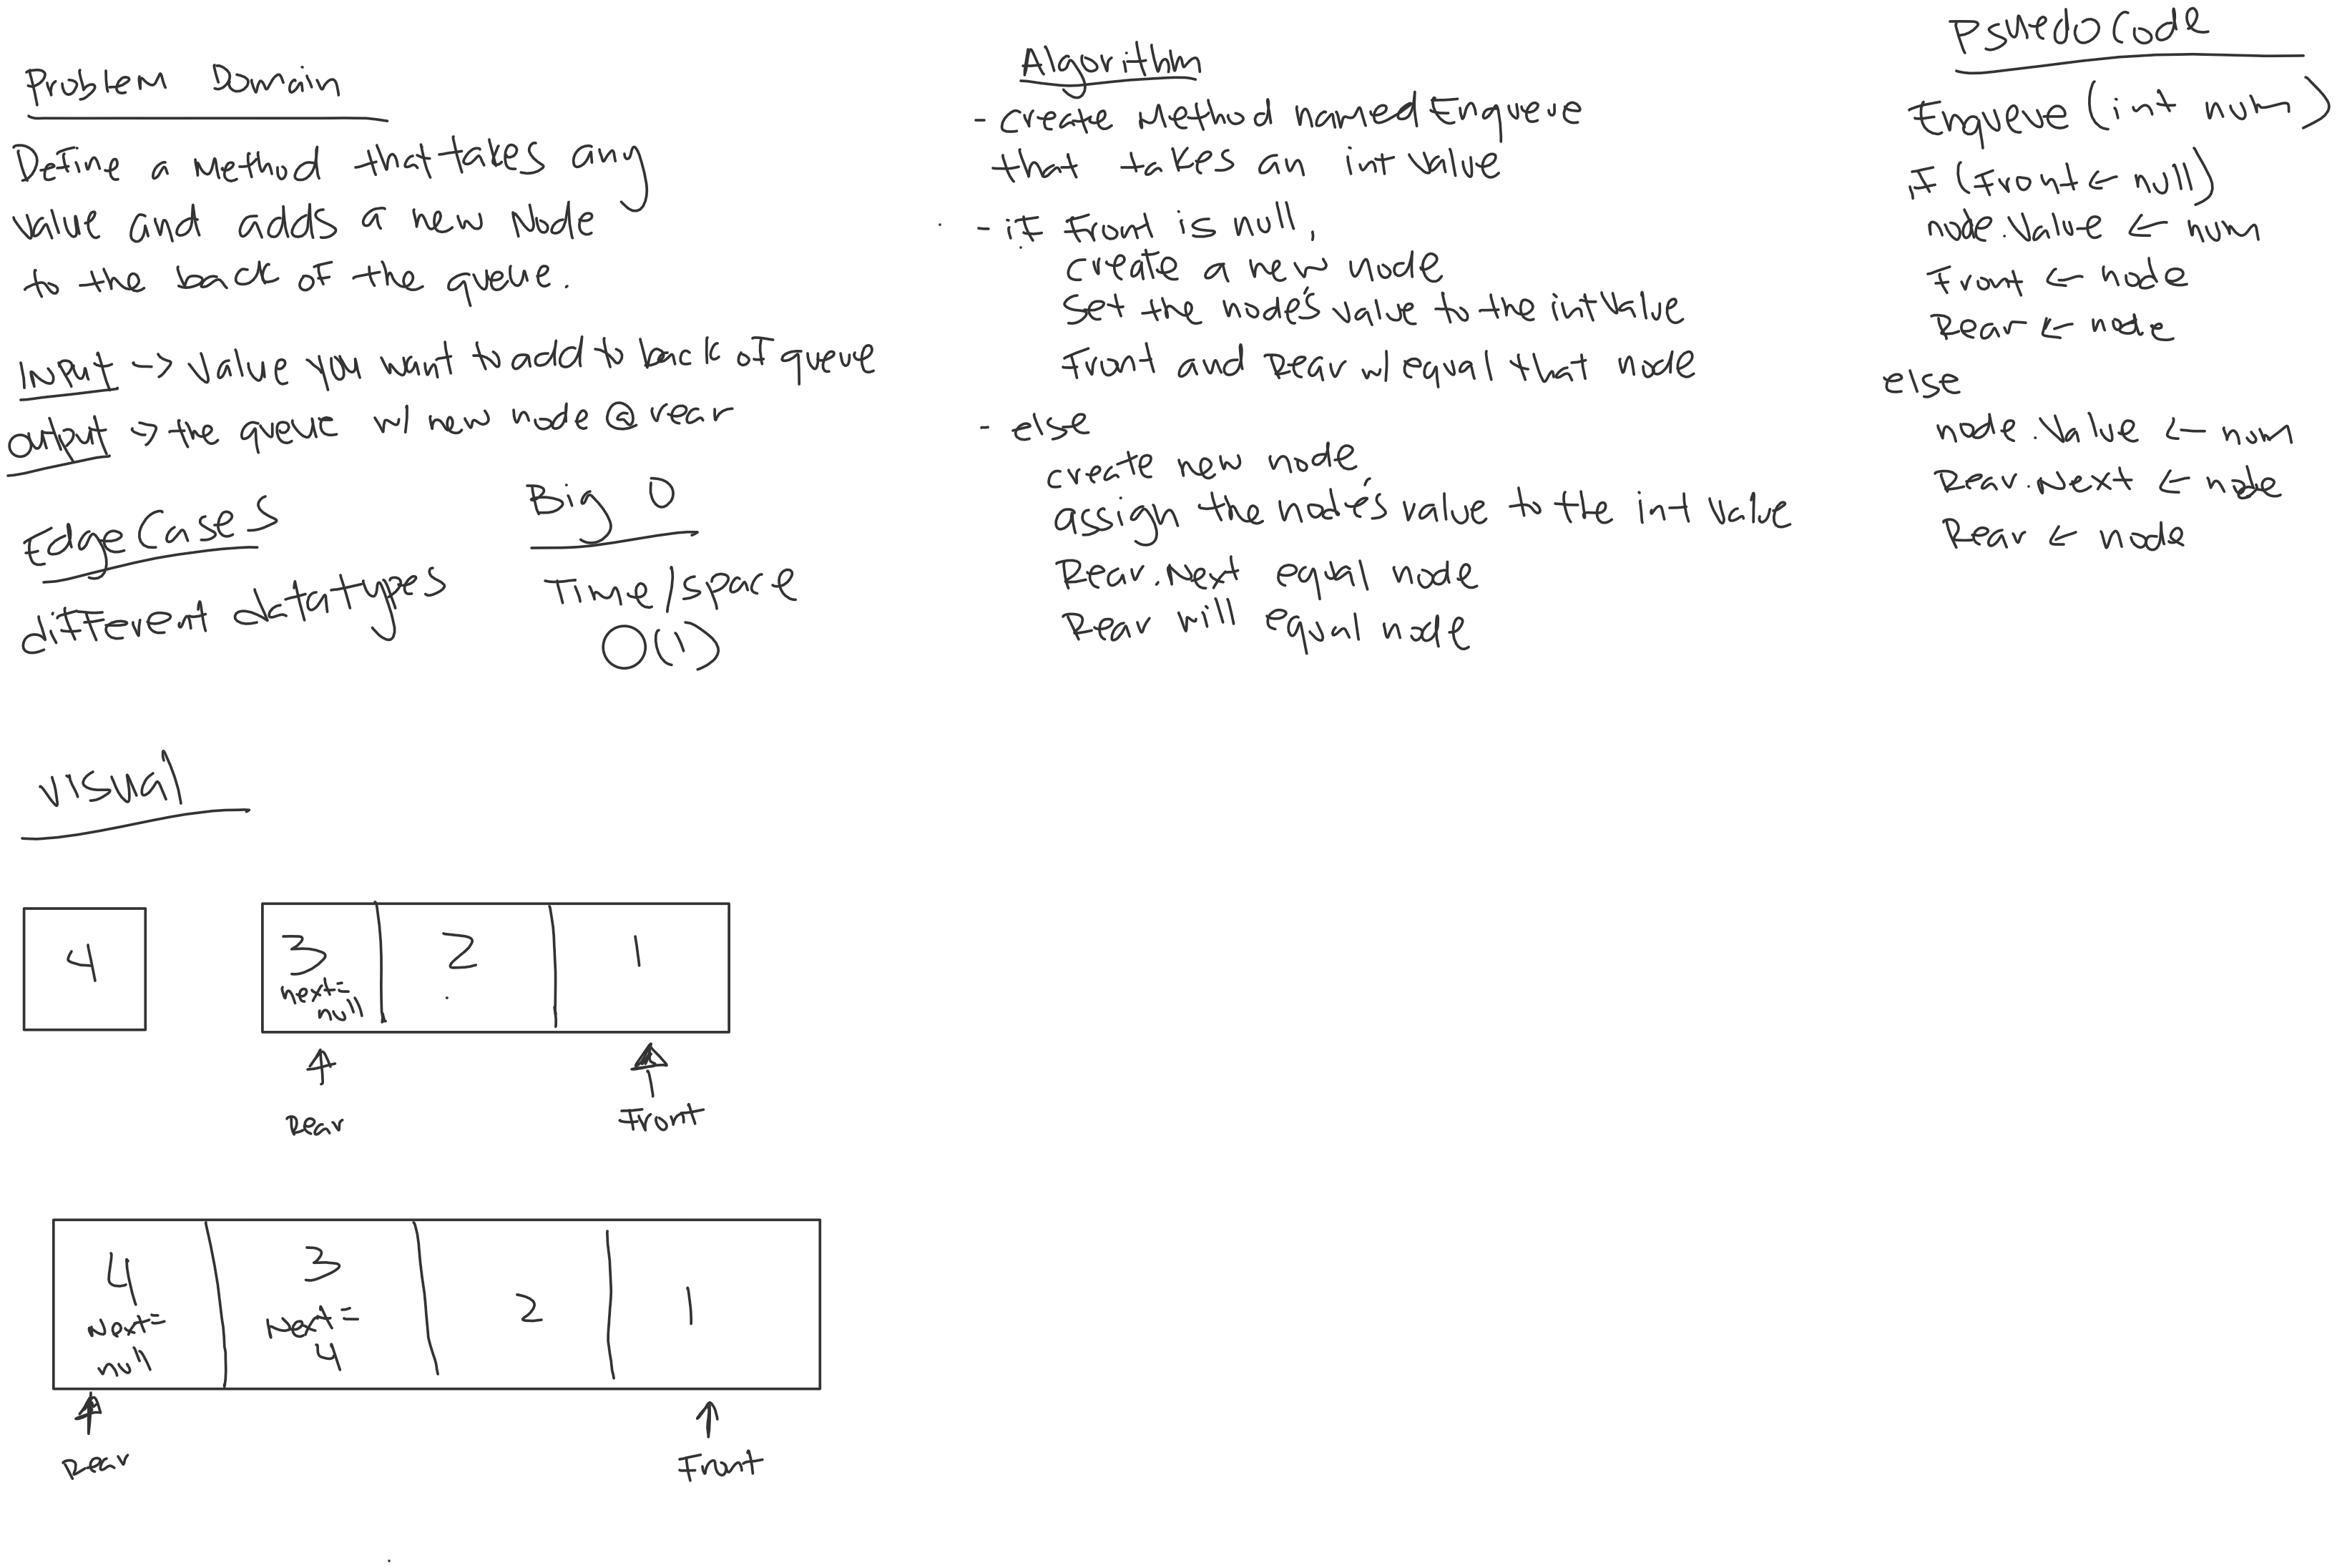 Problem Domain
Define a method that takes any
value and adds a new Node
to the back of the queue.
Input -> value you want to add to back of queue
output -> the queue w/ new node @ rear
Edge Cases
different datatypes
Big O
Time/space
O(1)
Visual
4
3
next=
null
2
1
Rear
Front
4
Next=
null
3
Next=
4
2
1
Rear
Front
Algorithm
- create method named Enqueue
that takes an int value
- if front is null,
create a new node
set the node's value to the int value
Front and Rear w/ equal that node
- else
create new node
assign the node's value to the int value
Rear.Next equal node
Rear will equal node
PsuedoCode
Enqueue (int num)
if (Front <- null)
node.Value <- num
Front <- node
Rear <- node
else
node.Value <- num
Rear.Next <- node
Rear <- node